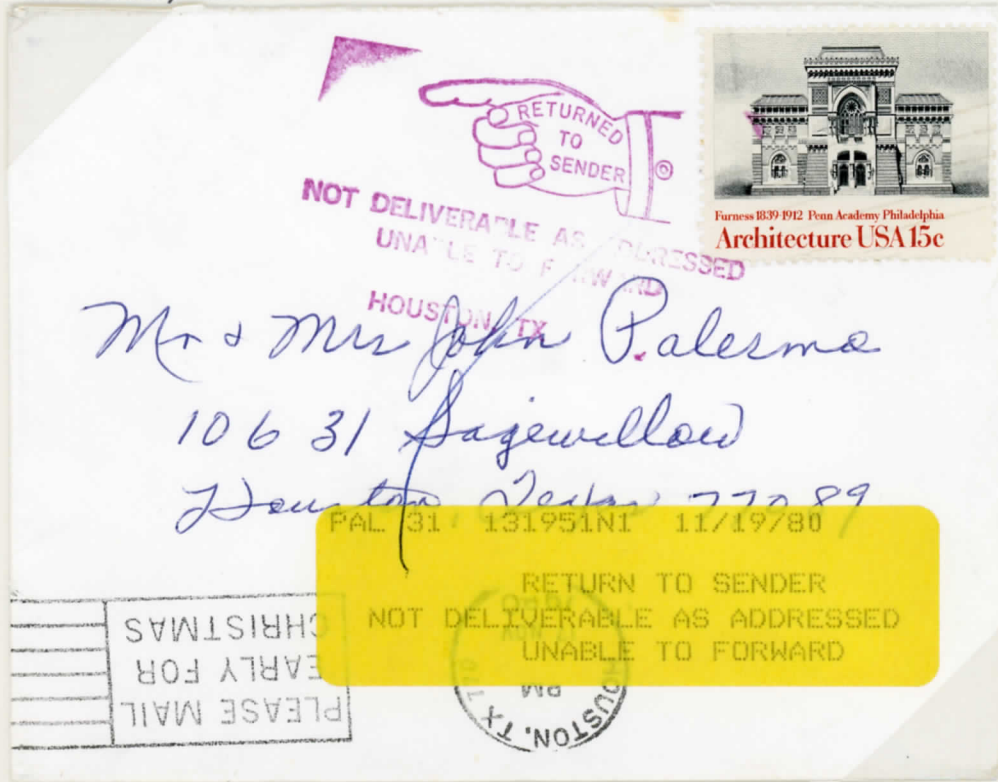 RETURNED
TO
SENDER
NOT DELIVERABLE AS ADDRESSED
UNABLE TO FORWARD
HOUSTON, TX
Furness 1839-1912 Penn Academy Philadelphia
Architecture USA 15c
Mr & Mrs John Palermo
10631 Sagewillow
Houston, Texas 77089
PAL 31 131951N1 11/19/80
RETURN TO SENDER
NOT DELIVERABLE AS ADDRESSED
UNABLE TO FORWARD
PLEASE MAIL
EARLY FOR
CHRISTMAS
HOUSTON, TX 770
PM
NOV
1980